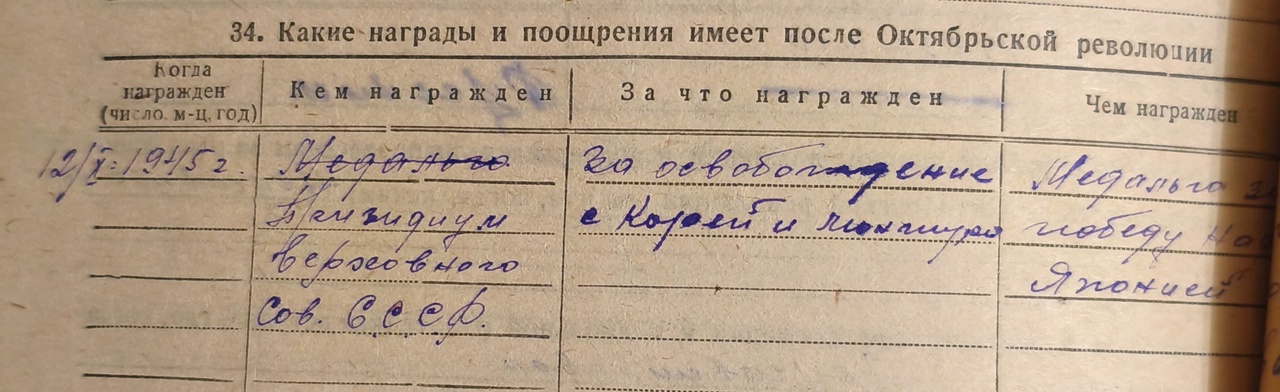 34. Какие награды и поощрения имеет после Октябрьской революции
Когда
награжден
(число. м-ц, год)
Кем награжден
За что награжден
Чем награжден
12/X-1945 г.
Медалью
Президиум
верховного
Сов. С.С.С.Р.
За освобождение
с Кореи и манжура
Медалью за
победу над
Японией